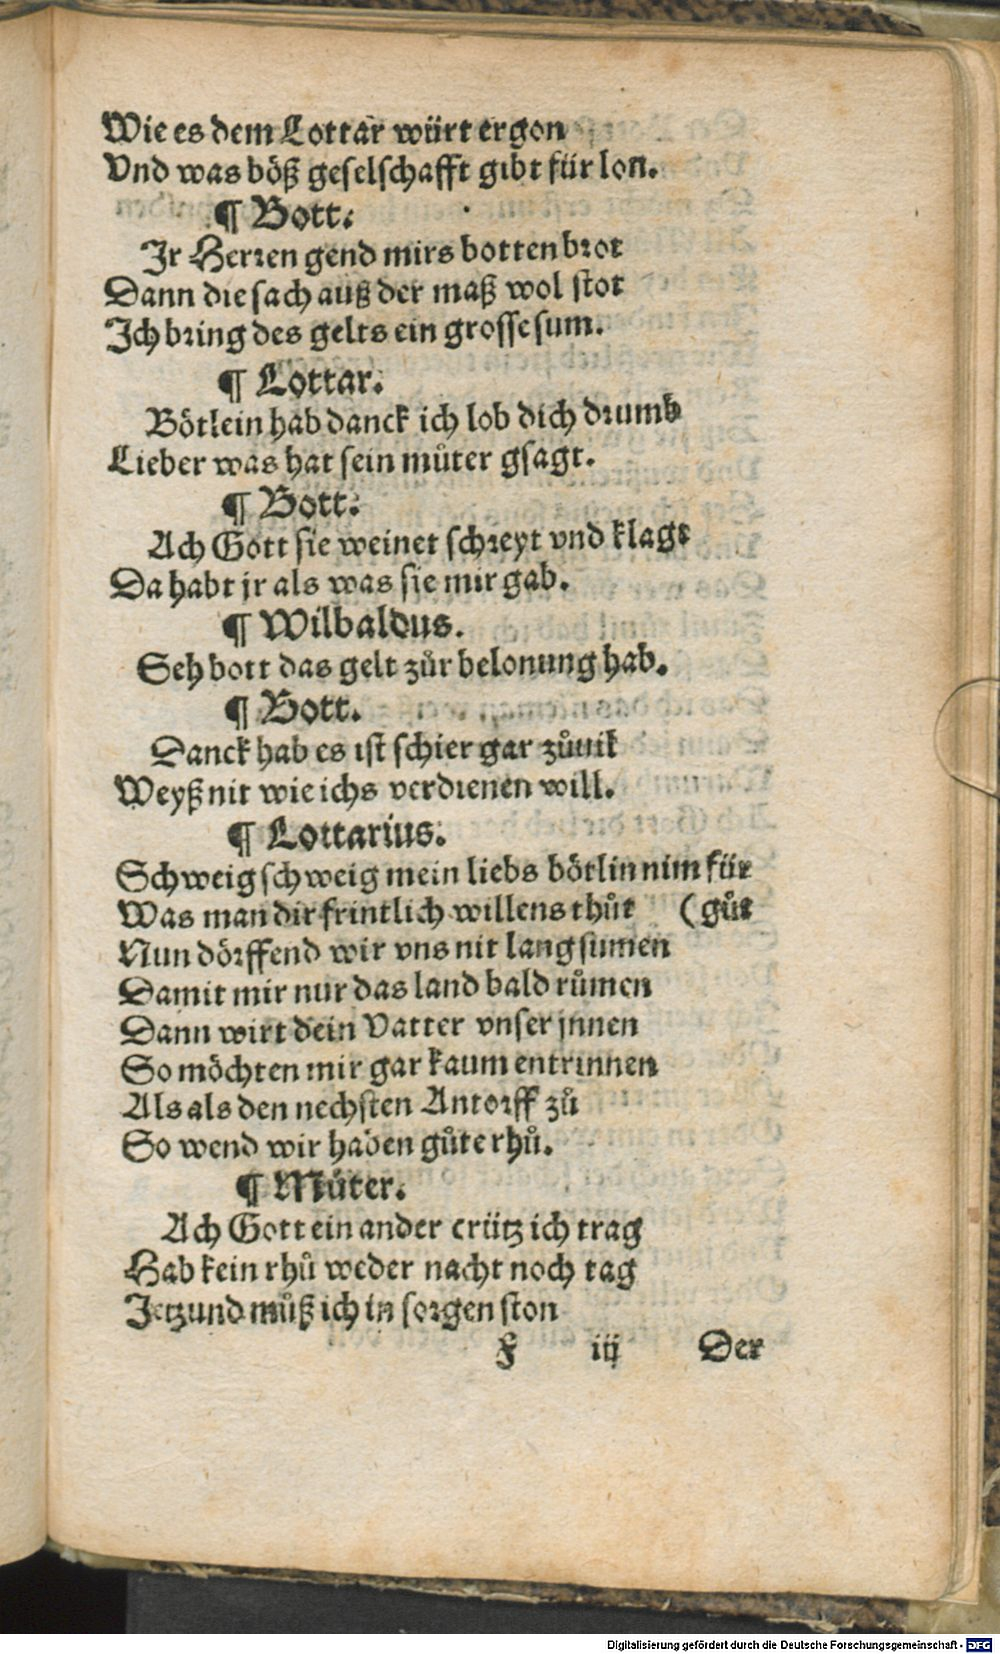 Wie es dem Lottar würt ergon
Vnd was böß geselschafft gibt für lon.
¶ Bott.
Jr Herren gend mirs bottenbrot
Dann die sach auß der maß wol stot
Jch bring des gelts ein grosse sum.
¶ Lottar.
Bötlein hab danck ich lob dich drumb
Lieber was hat sein můter gsagt.
¶ Bott.
Ach Gott sie weinet schreyt vnd klagt
Da habt jr als was sie mir gab.
¶ Wilbaldus.
Seh bott das gelt zůr belonung hab.
¶ Bott.
Danck hab es ist schier gar zůuil
Weyß nit wie ichs verdienen will.
¶ Lottarius.
Schweig schweig mein liebs bötlin nim für
Was man dir frintlich willens thůt (gůt
Nun dörffend wir vns nit lang sumen
Damit mir nur das land bald růmen
Dann wirt dein Vatter vnser jnnen
So möchten mir gar kaum entrinnen
Als als den nechsten Antorff zů
So wend wir haben gůte rhů.
¶ Můter.
Ach Gott ein ander crütz ich trag
Hab kein rhů weder nacht noch tag
Jetzund můß ich in sorgen ston
F iij Der
Digitalisierung gefördert durch die Deutsche Forschungsgemeinschaft - DFG